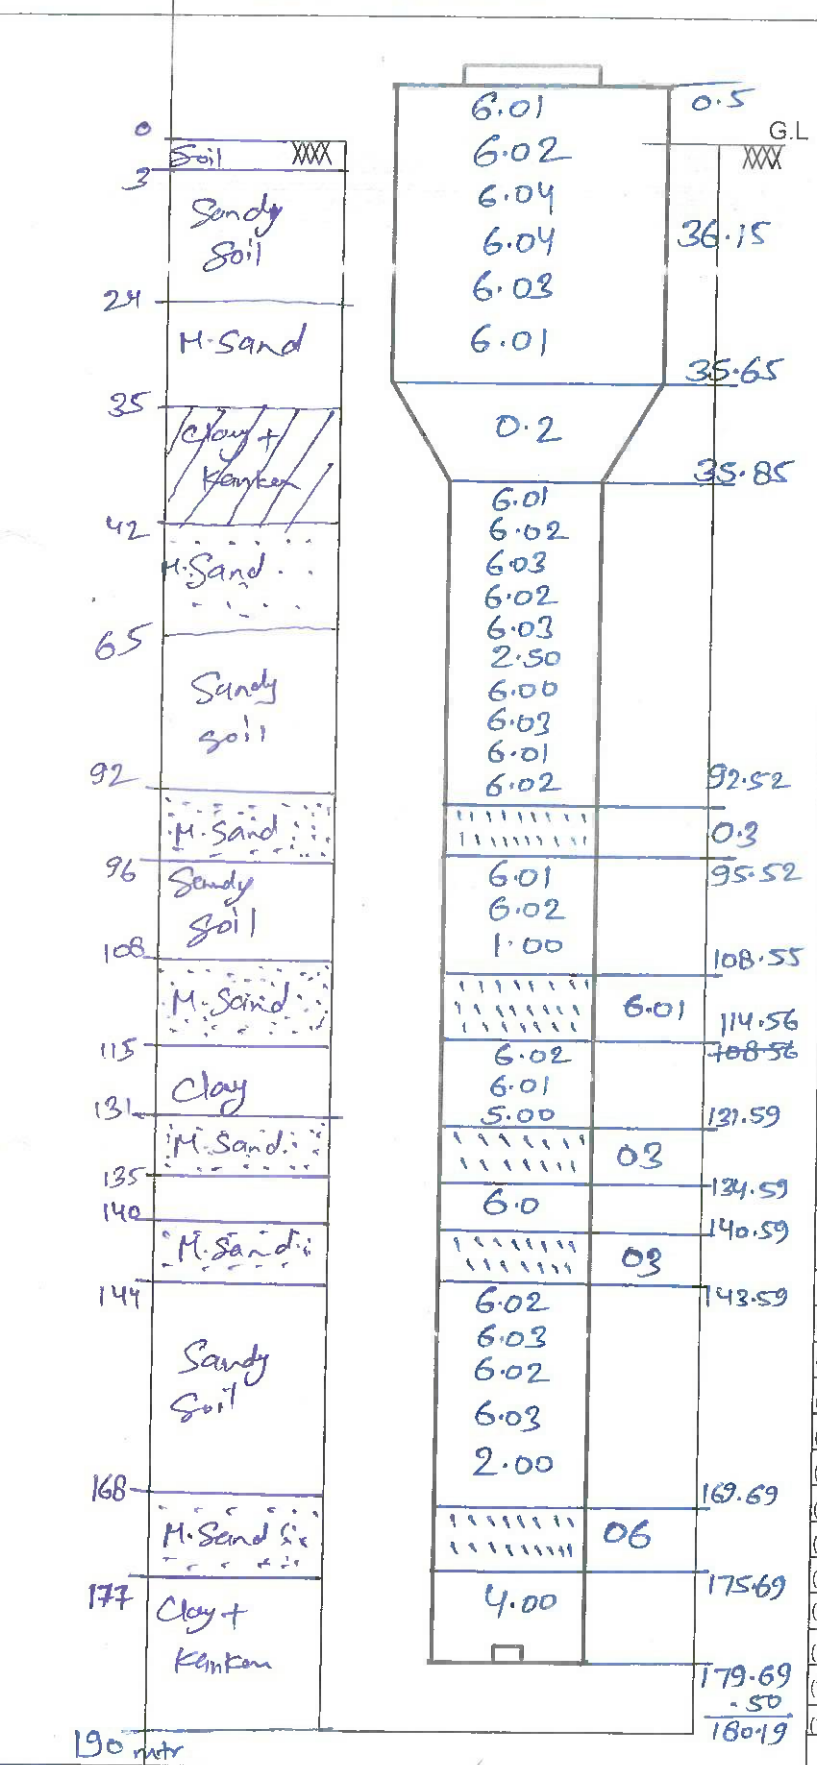 0
Soil
3
Sandy
Soil
24
M.Sand
35
Clay +
Kankar
42
M.Sand
65
Sandy
soil
92
M.Sand
96
Sandy
Soil
108
M.Sand
115
Clay
131
M.Sand
135
140
M.Sand
144
Sandy
Soil
168
M.Sand
177
Clay +
Kankar
190 mtr
6.01
6.02
6.04
6.04
6.03
6.01
0.2
6.01
6.02
6.03
6.02
6.03
2.50
6.00
6.03
6.01
6.02
6.01
6.02
1.00
6.01
6.02
6.01
5.00
03
6.0
03
6.02
6.03
6.02
6.03
2.00
06
4.00
0.5
G.L
36.15
35.65
35.85
92.52
0.3
95.52
108.55
114.56
108.56
131.59
134.59
140.59
143.59
169.69
175.69
179.69
.50
180.19